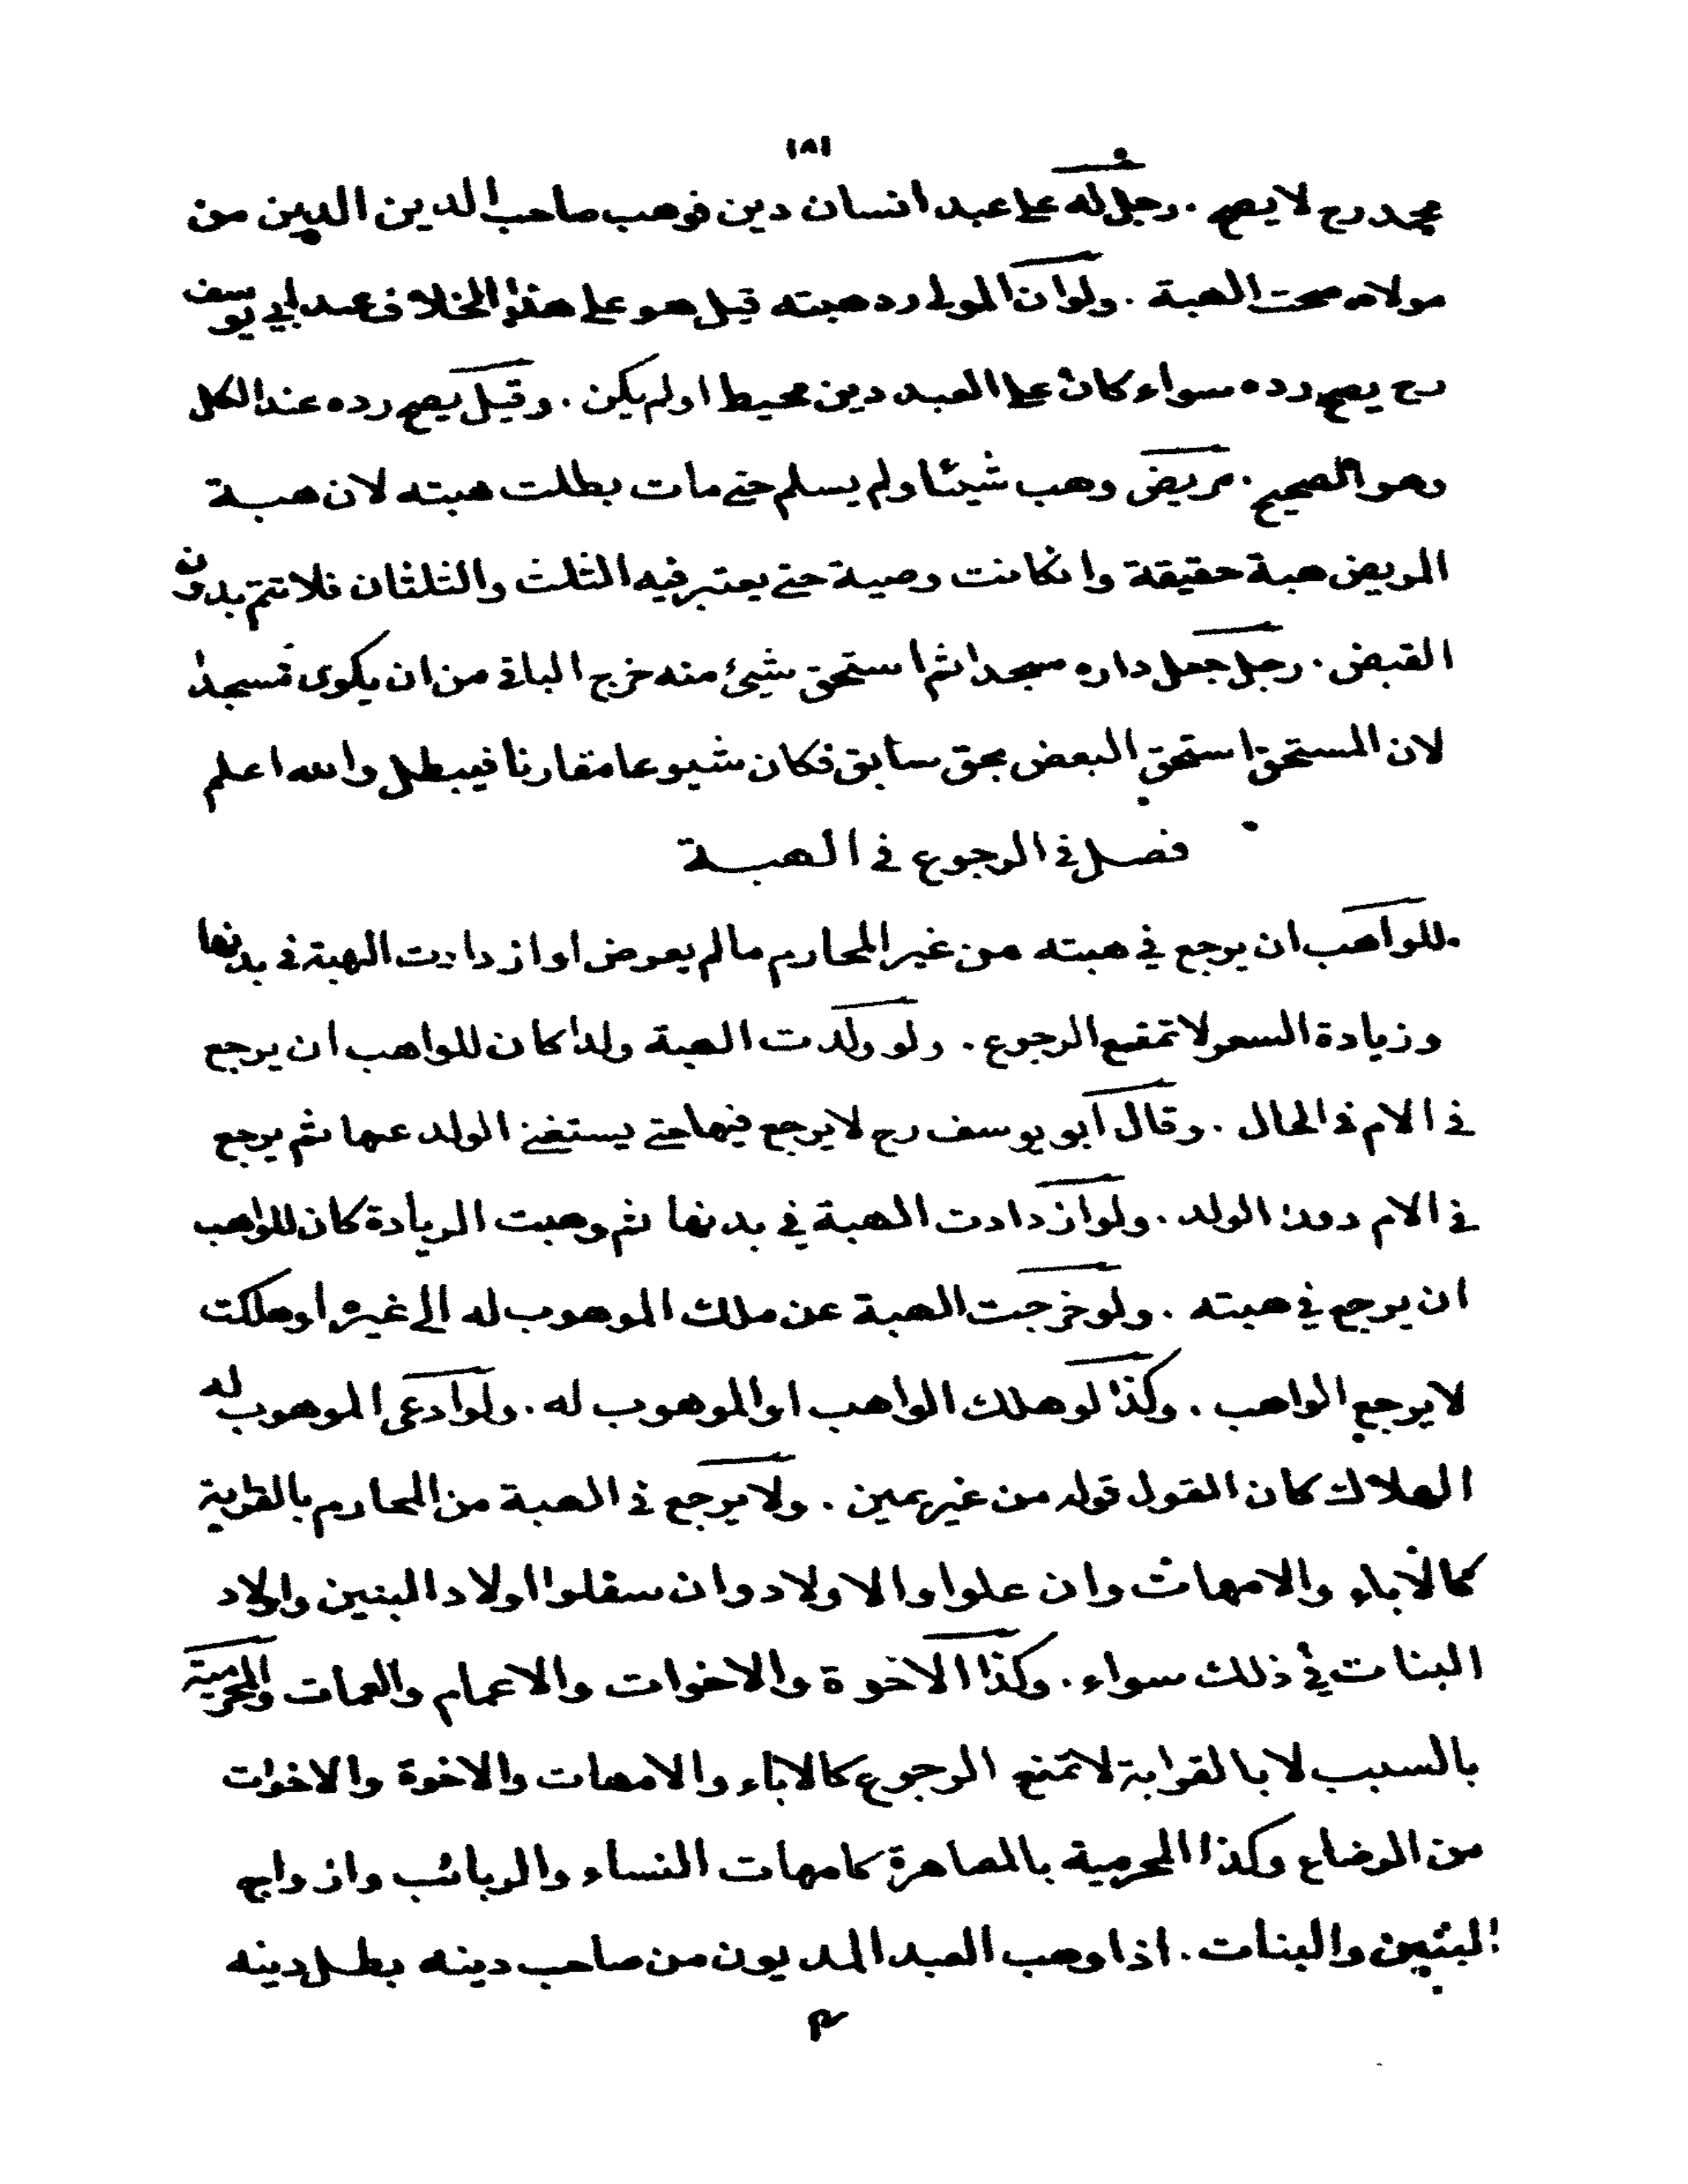 ١٨١
محمد رح لا يصح . رجل له على عبد انسان دين فوهب صاحب الدين الدين من
مولاه صحت الهبة . ولو ان المولى رد هبته قيل هو على هذا الخلاف عند ابي يوسف
رح يصح رده سواء كان على العبد دين محيط او لم يكن . وقيل يصح رده عند الكل
وهو الصحيح . مريض وهب شيئا ولم يسلم حتى مات بطلت هبته لان هبة
المريض هبة حقيقة وانكانت وصية حتى يعتبر فيه الثلث والثلثان فلا تتم بدون
القبض . رجل جعل داره مسجدا ثم استحق شيئ منه خرج الباقى من ان يكون مسجدا
لان المستحق استحق البعض بحق سابق فكان شيوعا مقارنا فيبطل والله اعلم
فصل فى الرجوع فى الهبة
للواهب ان يرجع فى هبته من غير المحارم ما لم يعوض او ازدادت الهبة فى بدنها
وزيادة السعر لا تمنع الرجوع . ولو ولدت الهبة ولدا كان للواهب ان يرجع
فى الام فى الحال . وقال ابو يوسف رح لا يرجع فيها حتى يستغنى الولد عنها ثم يرجع
فى الام دون الولد . ولو ازدادت الهبة فى بدنها ثم وهبت الزيادة كان للواهب
ان يرجع فى هبته . ولو خرجت الهبة عن ملك الموهوب له الى غيره او هلكت
لا يرجع الواهب . وكذا لو هلك الواهب او الموهوب له . ولو ادعى الموهوب له
الهلاك كان القول قوله من غير يمين . ولا يرجع فى الهبة من المحارم بالقرابة
كالآباء والامهات وان علوا والاولاد وان سفلوا اولاد البنين واولاد
البنات فى ذلك سواء . وكذا الاخوة والاخوات والاعمام والعمات والمحرمية
بالسبب لا بالقرابة لا تمنع الرجوع كالاباء والامهات والاخوة والاخوات
من الرضاع وكذا المحرمية بالمصاهرة كامهات النساء والربائب وازواج
البنين والبنات . اذا وهب العبد المديون من صاحب دينه بطل دينه